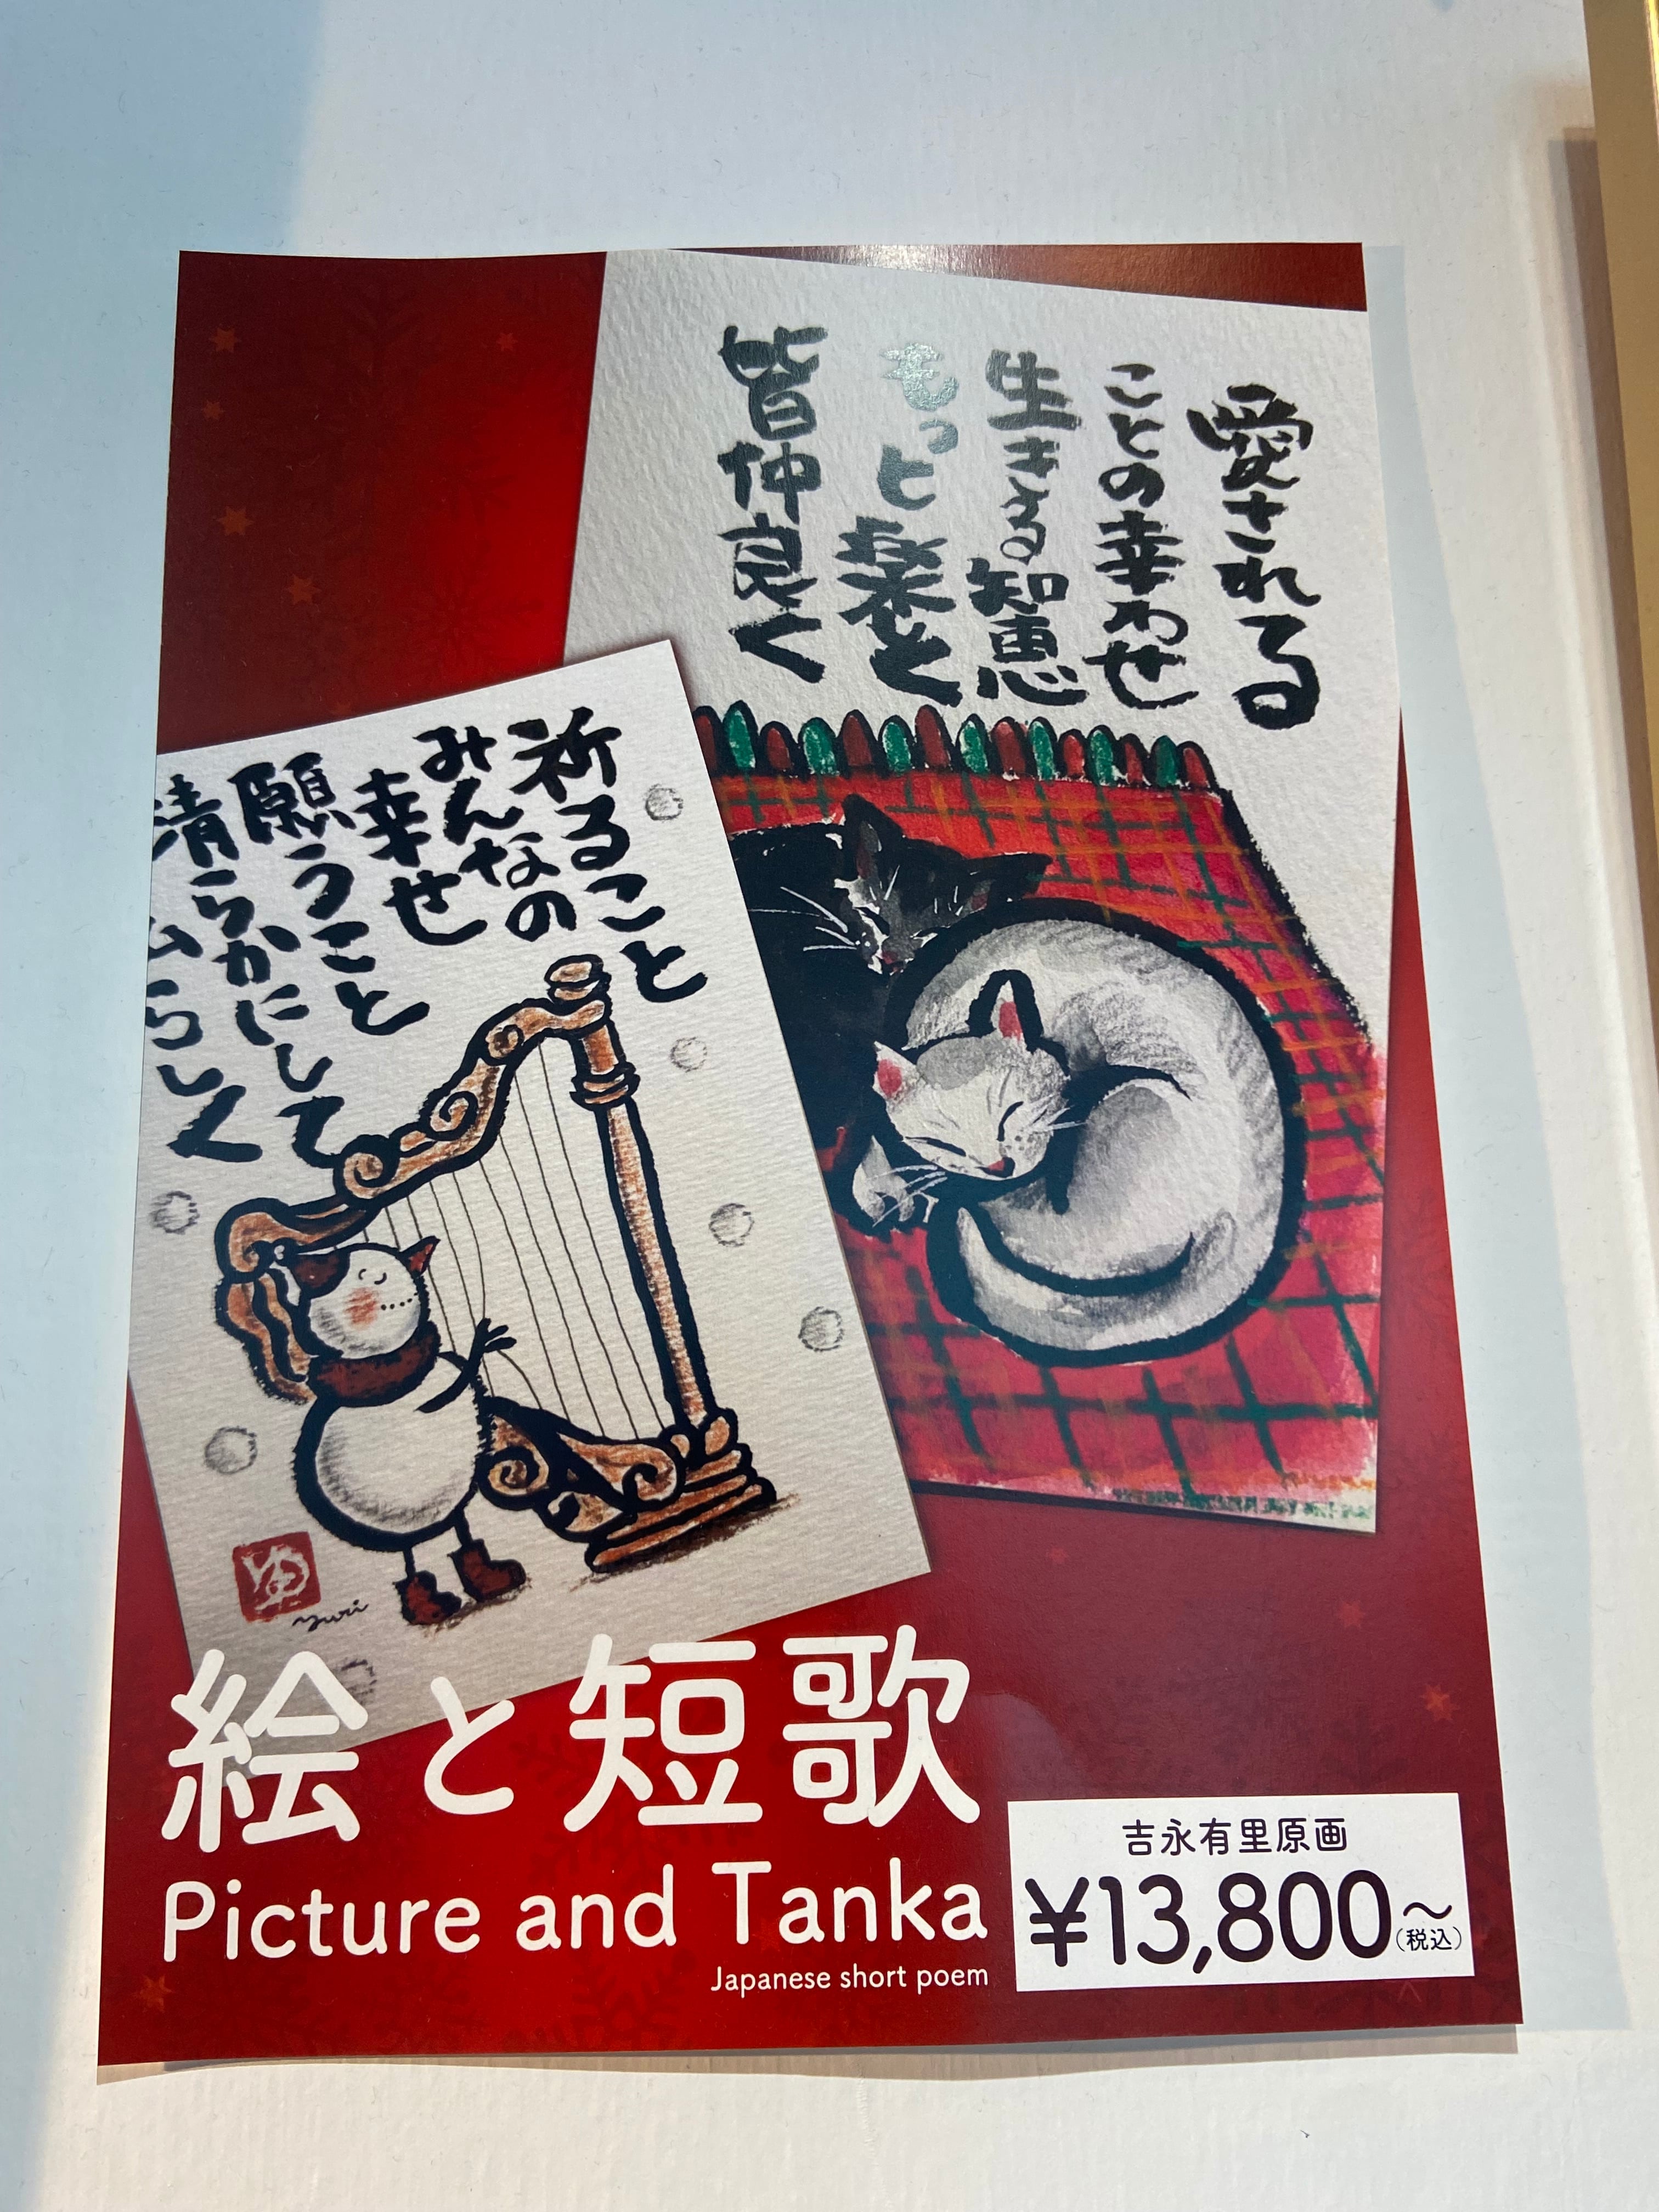 愛される
ことの幸わせ
生きる知恵
もっと楽と
皆仲良く
祈ること
みんなの
幸せ
願うこと
清らかにして
らしく
ゆ
yuri
絵と短歌
Picture and Tanka
Japanese short poem
吉永有里原画
¥13,800~
(税込)